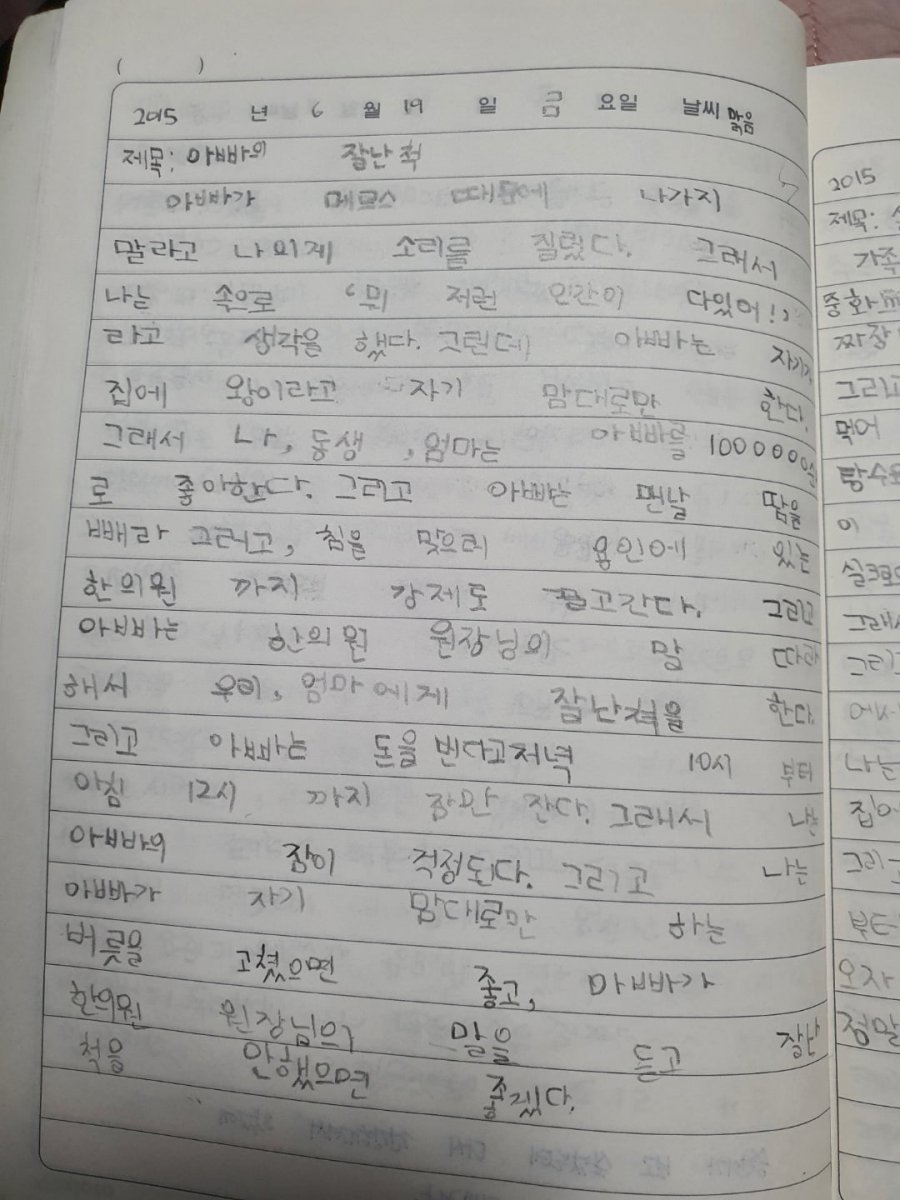 ( )
2015 년 6 월 19 일 금 요일 날씨 맑음
제목: 아빠의 잘난척
아빠가 메르스 때문에 나가지
말라고 나의게 소리를 질렀다. 그래서
나는 속으로 '뭐 저런 인간이 다있어!'
라고 생각을 했다. 그런데 아빠는 자기가
집에 왕이라고 자기 맘대로만 한다.
그래서 나, 동생, 엄마는 아빠를
로 좋아한다. 그리고 아빠는 맨날 땀을
빼라 그리고, 침을 맞으러 용인에 있는
한의원 까지 강제로 끌고간다. 그리고
아빠는 한의원 원장님의 말 따라
해서 우리, 엄마에게 잘난척을 한다.
그리고 아빠는 돈을 번다고 저녁 10시 부터
아침 12시 까지 잠만 잔다. 그래서 나는
아빠의 잠이 걱정된다. 그리고 나는
아빠가 자기 맘대로만 하는
버릇을 고쳤으면 좋고, 아빠가
한의원 원장님의 말을 듣고 잘난
척을 안했으면 좋겠다.
2015
제목:
가족
중화
짜장
그리고
먹어
탕수육
이
그래서
그리고
나는
집에
부터
오자
정말